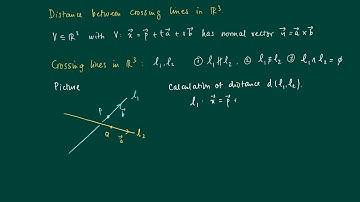 Distance between crossing lines in ℝ³
V ⊆ ℝ³ with V: x⃗ = p⃗ + t a⃗ + s b⃗ has normal vector n⃗ = a⃗ × b⃗
Crossing lines in ℝ³: l₁, l₂ ① l₁ ∦ l₂, ② l₁ ≠ l₂ ③ l₁ ∩ l₂ = ∅
Picture
Calculation of distance d(l₁, l₂).
l₁: x⃗ = p⃗ +
l₁
P
b⃗
Q
a⃗
l₂